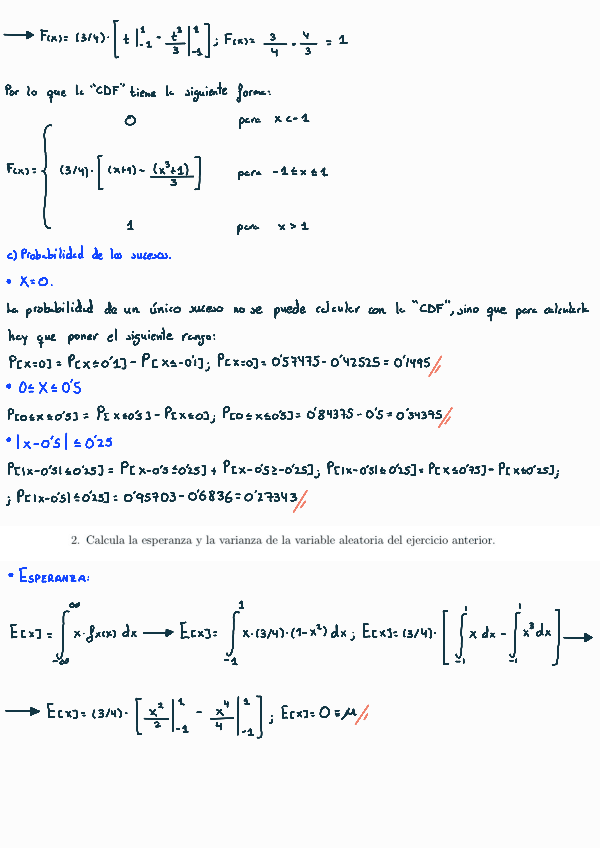 → F(x)= (3/4)·[ t |¹₋₁ - t³/3 |¹₋₁ ]; F(x)= 3/4 · 4/3 = 1
Por lo que la "CDF" tiene la siguiente forma:
0 para x<-1
F(x)= { (3/4)·[ (x+1) - (x³+1)/3 ] para -1≤x≤1
1 para x>1
c) Probabilidad de los sucesos.
• X=0.
La probabilidad de un único suceso no se puede calcular con la "CDF", sino que para calcularla
hay que poner el siguiente rango:
P[x=0] = P[x≤0'1] - P[x≤-0'1]; P[x=0] = 0'57475 - 0'42525 = 0'1495
• 0≤X≤0'5
P[0≤x≤0'5] = P[x≤0'5] - P[x≤0]; P[0≤x≤0'5] = 0'84375 - 0'5 = 0'34375
• |x-0'5| ≤ 0'25
P[|x-0'5|≤0'25] = P[x-0'5≤0'25] + P[x-0'5≥-0'25]; P[|x-0'5|≤0'25] = P[x≤0'75] - P[x≤0'25];
; P[|x-0'5|≤0'25] = 0'95703 - 0'6836 = 0'27343
2. Calcula la esperanza y la varianza de la variable aleatoria del ejercicio anterior.
• ESPERANZA:
E[x] = ∫_{-∞}^{∞} x·fx(x) dx → E[x] = ∫_{-1}^{1} x·(3/4)·(1-x²) dx; E[x] = (3/4)·[ ∫_{-1}^{1} x dx - ∫_{-1}^{1} x³ dx ] →
→ E[x] = (3/4)·[ x²/2 |¹₋₁ - x⁴/4 |¹₋₁ ]; E[x] = 0 = μ